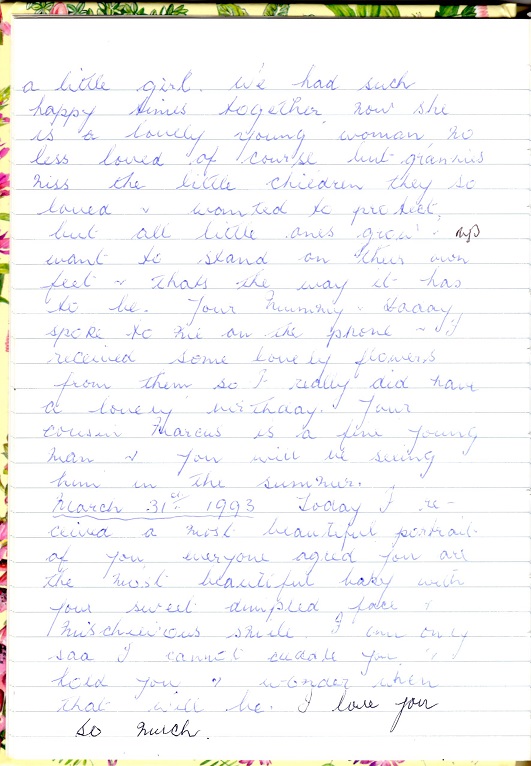 a little girl. We had such
happy times together, now she
is a lovely young woman, no
less loved of course but grannies
miss the little children they so
loved & wanted to protect,
but all little ones grow up
want to stand on their own
feet & thats the way it has
to be. Your Mummy & Daddy
spoke to me on the phone & I
received some lovely flowers
from them so I really did have
a lovely birthday. Your
cousin Marcus is a fine young
man & you will be seeing
him in the summer.
March 31st 1993 Today I re-
ceived a most beautiful portrait
of you, everyone agred you are
the most beautiful baby with
your sweet dimpled face &
mischievious smile. I am only
sad I cannot cuddle you &
hold you & wonder when
that will be. I love you
so much.